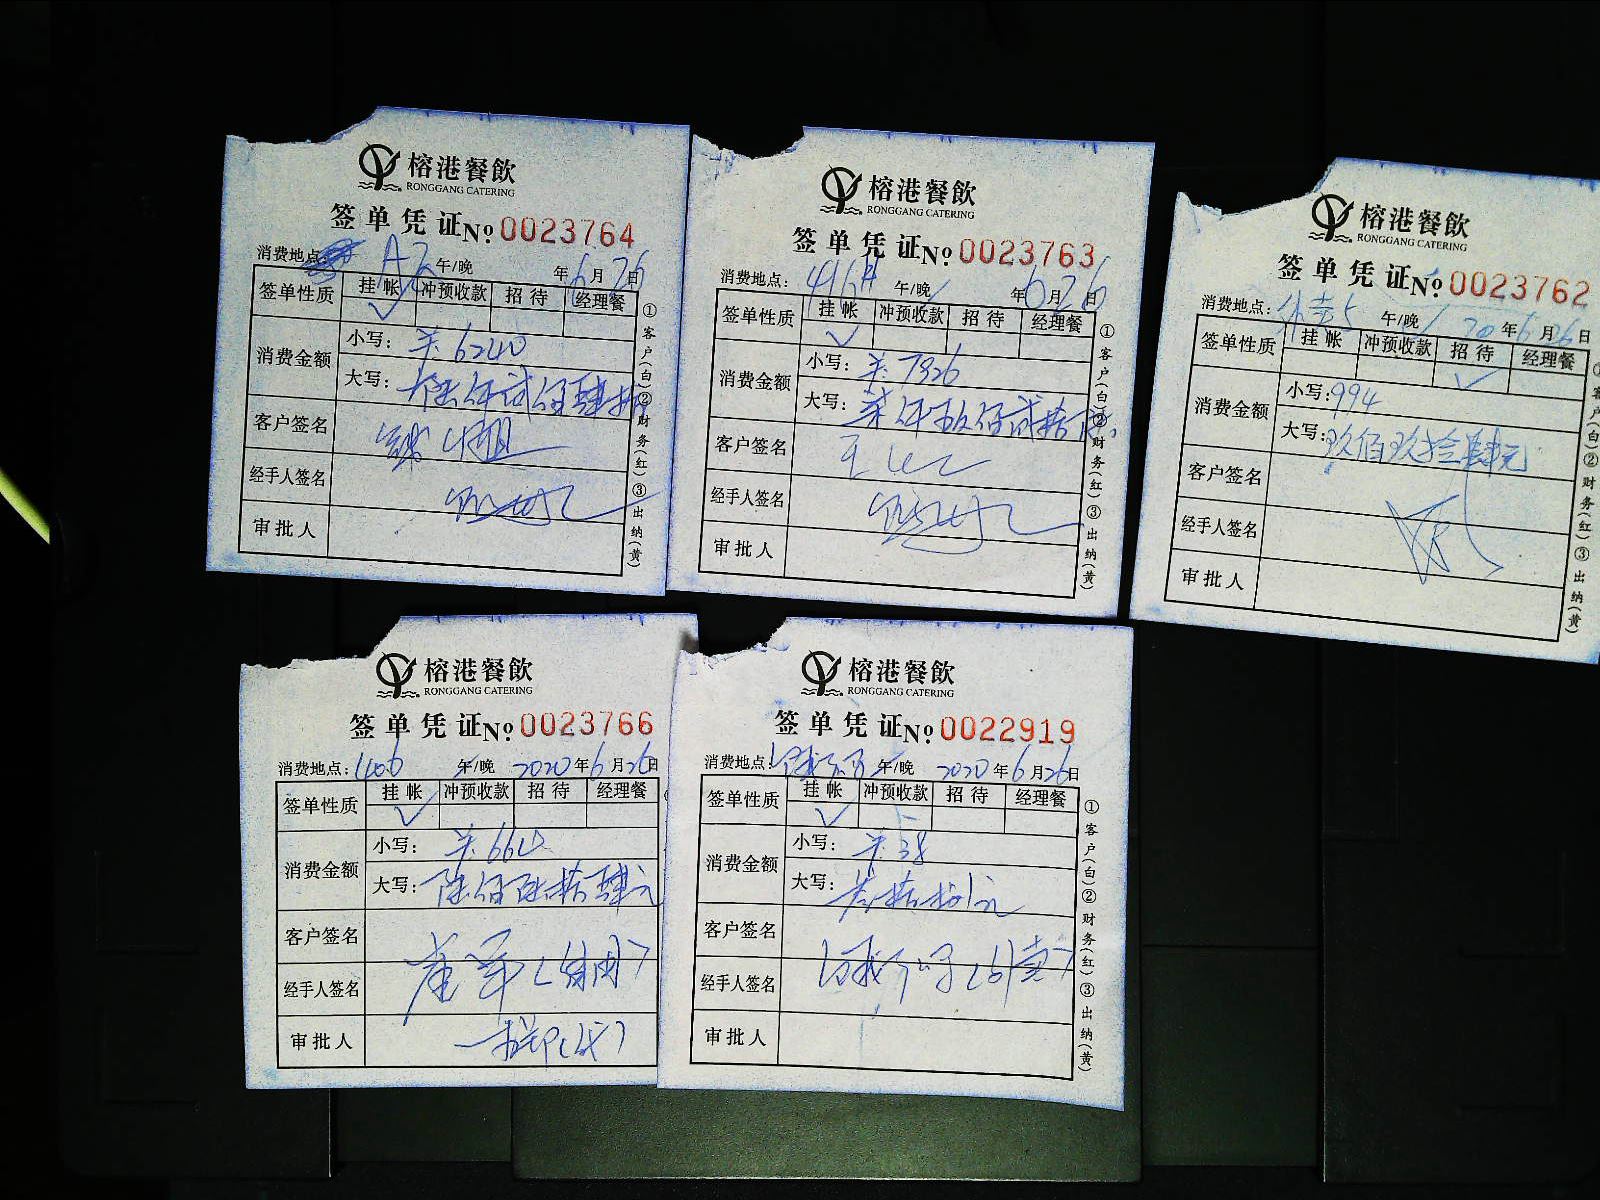 榕港餐飲
RONGGANG CATERING
签单凭证№0023764
消费地点: A区 午/晚 年6月26日
签单性质 挂帐 冲预收款 招待 经理餐
✓
消费金额 小写: 6240
大写: 陆仟贰佰肆拾
客户签名
经手人签名
审批人
①客户(白)②财务(红)③出纳(黄)
榕港餐飲
RONGGANG CATERING
签单凭证№0023763
消费地点: 416 午/晚 年6月26日
签单性质 挂帐 冲预收款 招待 经理餐
✓
消费金额 小写: 7326
大写:
客户签名
经手人签名
审批人
①客户(白)②财务(红)③出纳(黄)
榕港餐飲
RONGGANG CATERING
签单凭证№0023762
消费地点: 午/晚 20年6月26日
签单性质 挂帐 冲预收款 招待 经理餐
✓
消费金额 小写:994
大写:玖佰玖拾肆元
客户签名
经手人签名
审批人
客户(白)②财务(红)③出纳(黄)
榕港餐飲
RONGGANG CATERING
签单凭证№0023766
消费地点: 1406 午/晚 2020年6月26日
签单性质 挂帐 冲预收款 招待 经理餐
✓
消费金额 小写: 664
大写: 陆佰陆拾肆元
客户签名
经手人签名
审批人
榕港餐飲
RONGGANG CATERING
签单凭证№0022919
消费地点: 午/晚 2020年6月26日
签单性质 挂帐 冲预收款 招待 经理餐
✓
消费金额 小写: 38
大写: 叁拾捌元
客户签名
经手人签名
审批人
①客户(白)②财务(红)③出纳(黄)